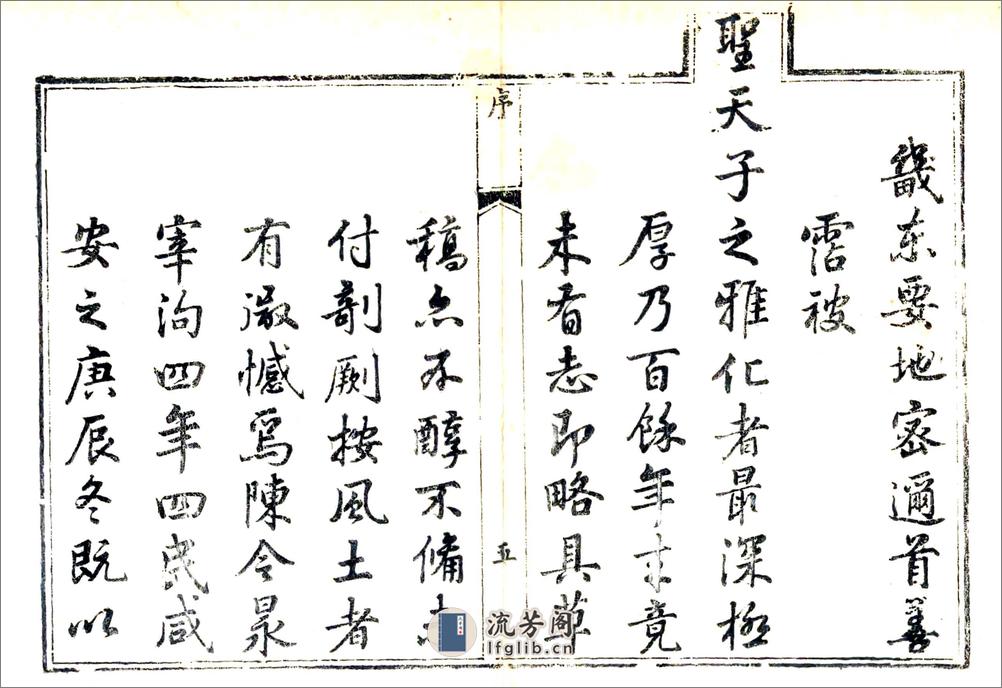 畿東要地密邇首善
霑被
聖天子之雅化者最深極
厚乃百餘年來竟
未有志即略具草
序
五
稿亦不醇不備未
付剞劂按風土者
有微憾焉陳令昶
宰泃四年四民咸
安之庚辰冬既以
流芳阁
lfglib.cn